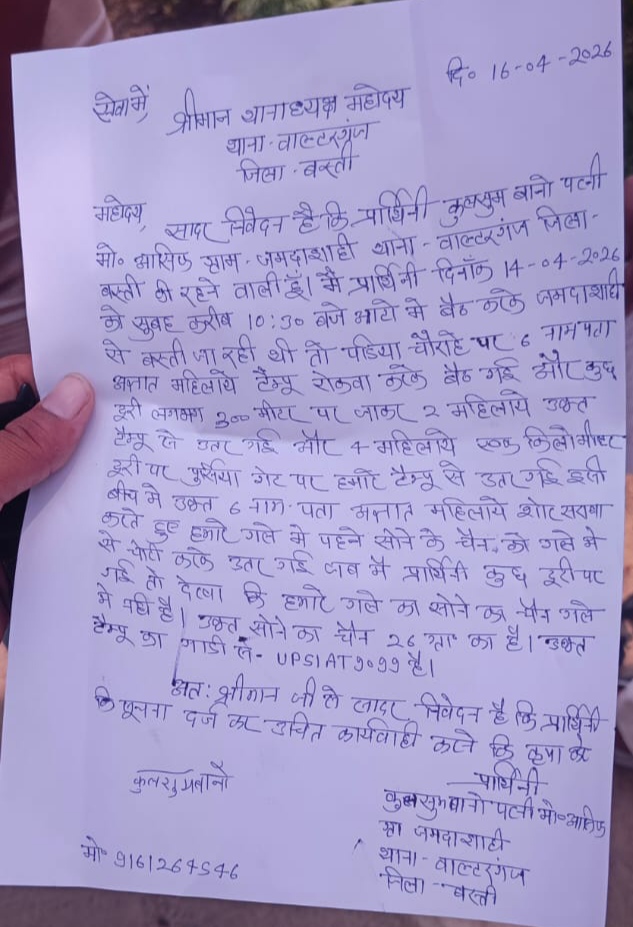 दि० 16-04-2026
सेवा में,
श्रीमान थानाध्यक्ष महोदय
थाना- वाल्टरगंज
जिला- बस्ती
महोदय,
सादर निवेदन है कि प्रार्थिनी कुलसुम बानो पत्नी
मो० आसिफ ग्राम- जमदाशाही थाना- वाल्टरगंज जिला-
बस्ती की रहने वाली हूँ। मै प्रार्थिनी दिनाँक 14-04-2026
को सुबह करीब 10:30 बजे आटो मे बैठ करके जमदाशाही
से बस्ती जा रही थी तो पडिया चौराहे पर 6 नाम पता
अज्ञात महिलाये टैम्पू रोकवा करके बैठ गई और कुछ
दुरी लगभग 300 मीटर पर जाकर 2 महिलाये उक्त
टैम्पू से उतर गई और 4 महिलाये एक किलोमीटर
दुरी पर गेट पर हमारे टैम्पू से उतर गई इसी
बीच मे उक्त 6 नाम- पता अज्ञात महिलाये शोर सराबा
करते हुए हमारे गले मे पहने सोने के चैन को गले मे
से चोरी करके उतर गई जब मै प्रार्थिनी कुछ दुरी पर
गई तो देखा कि हमारे गले का सोने का चैन गले
मे नही है। उक्त सोने का चैन 26 का है। उक्त
टैम्पू का गाडी नं- UP51AT9099 है।
अत: श्रीमान जी से सादर निवेदन है कि प्रार्थिनी
कि सूचना दर्ज कर उचित कार्यवाही करने कि कृपा करे
प्रार्थिनी
कुलसुमबानो
कुलसुमबानो पत्नी मो० आसिफ
ग्रा जमदाशाही
थाना- वाल्टरगंज
जिला- बस्ती
मो० 9161264546